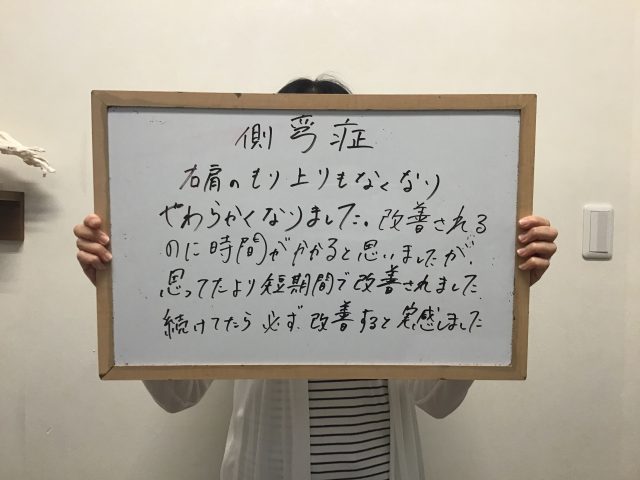 側弯症
右肩のもり上りもなくなり
やわらかくなりました。改善される
のに時間がかかると思いましたが、
思ってたより短期間で改善されました
続けてたら必ず改善すると実感しました